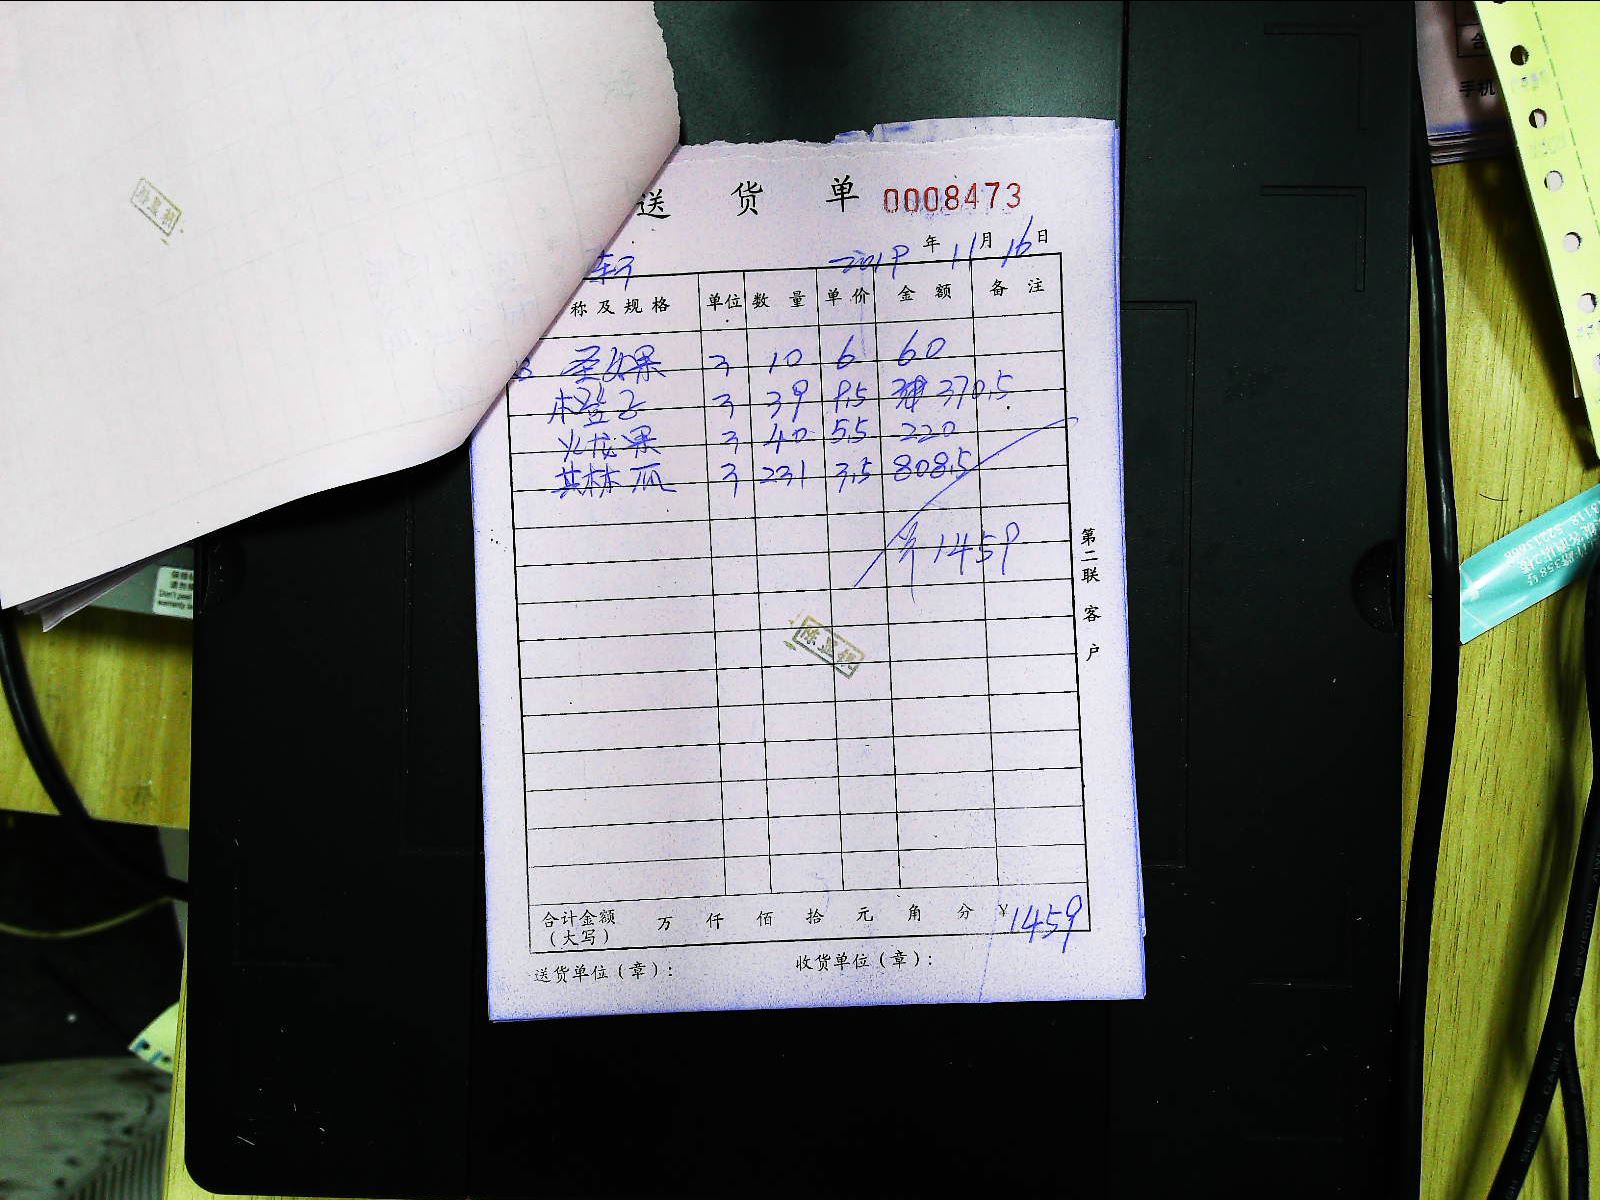 送 货 单 0008473
2019 年 11 月 16 日
称及规格 单位 数量 单价 金额 备注
圣女果 3 10 6 60
橙子 3 39 9.5 370.5
火龙果 3 40 5.5 220
其林瓜 3 231 3.5 808.5
1459
陈亚
第二联 客户
合计金额 万 仟 佰 拾 元 角 分 ¥1459
(大写)
送货单位(章): 收货单位(章):
手机